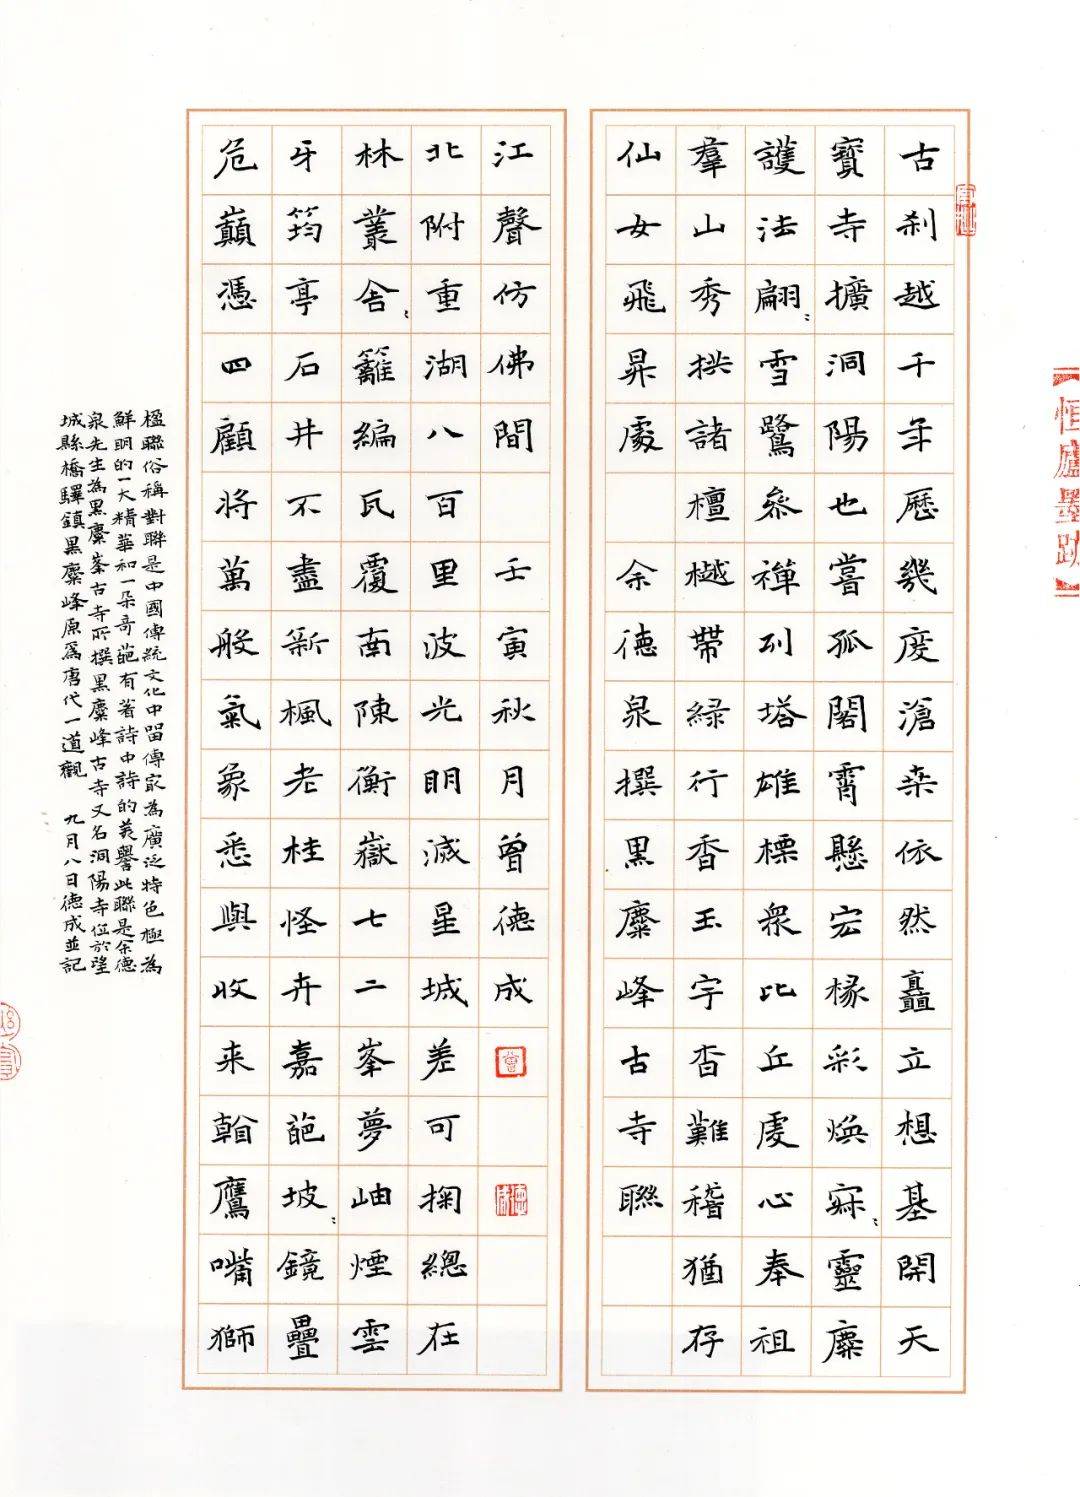 【恒廬墨跡】
古刹越千年歷幾度滄桑依然矗立想基開天
寶寺擴洞陽也嘗孤閣霄懸宏椽彩煥寐〻靈麋
護法翩〻雪鷺參禪列塔雄標眾比丘虔心奉祖
羣山秀拱諸檀樾帶綠行香玉宇杳難稽猶存
仙女飛昇處 余德泉撰黑麋峰古寺聯
危巔憑四顧將萬般氣象悉與收来翰鷹嘴獅
牙筠亭石井不盡新楓老桂怪卉嘉葩坡〻鏡疊
林叢舍〻籬編瓦覆南陳衡嶽七二峯夢岫煙雲
北附重湖八百里波光明滅星城差可掬總在
江聲仿佛間 壬寅秋月曾德成
楹聯俗稱對聯是中國傳統文化中留傳最為廣泛特色極為
鮮明的一大精華和一朵奇葩有著詩中詩的美譽此聯是余德
泉先生為黑麋峯古寺所撰黑麋峰古寺又名洞陽寺位於望
城縣橋驛鎮黑麋峰原為唐代一道觀 九月八日德成並記